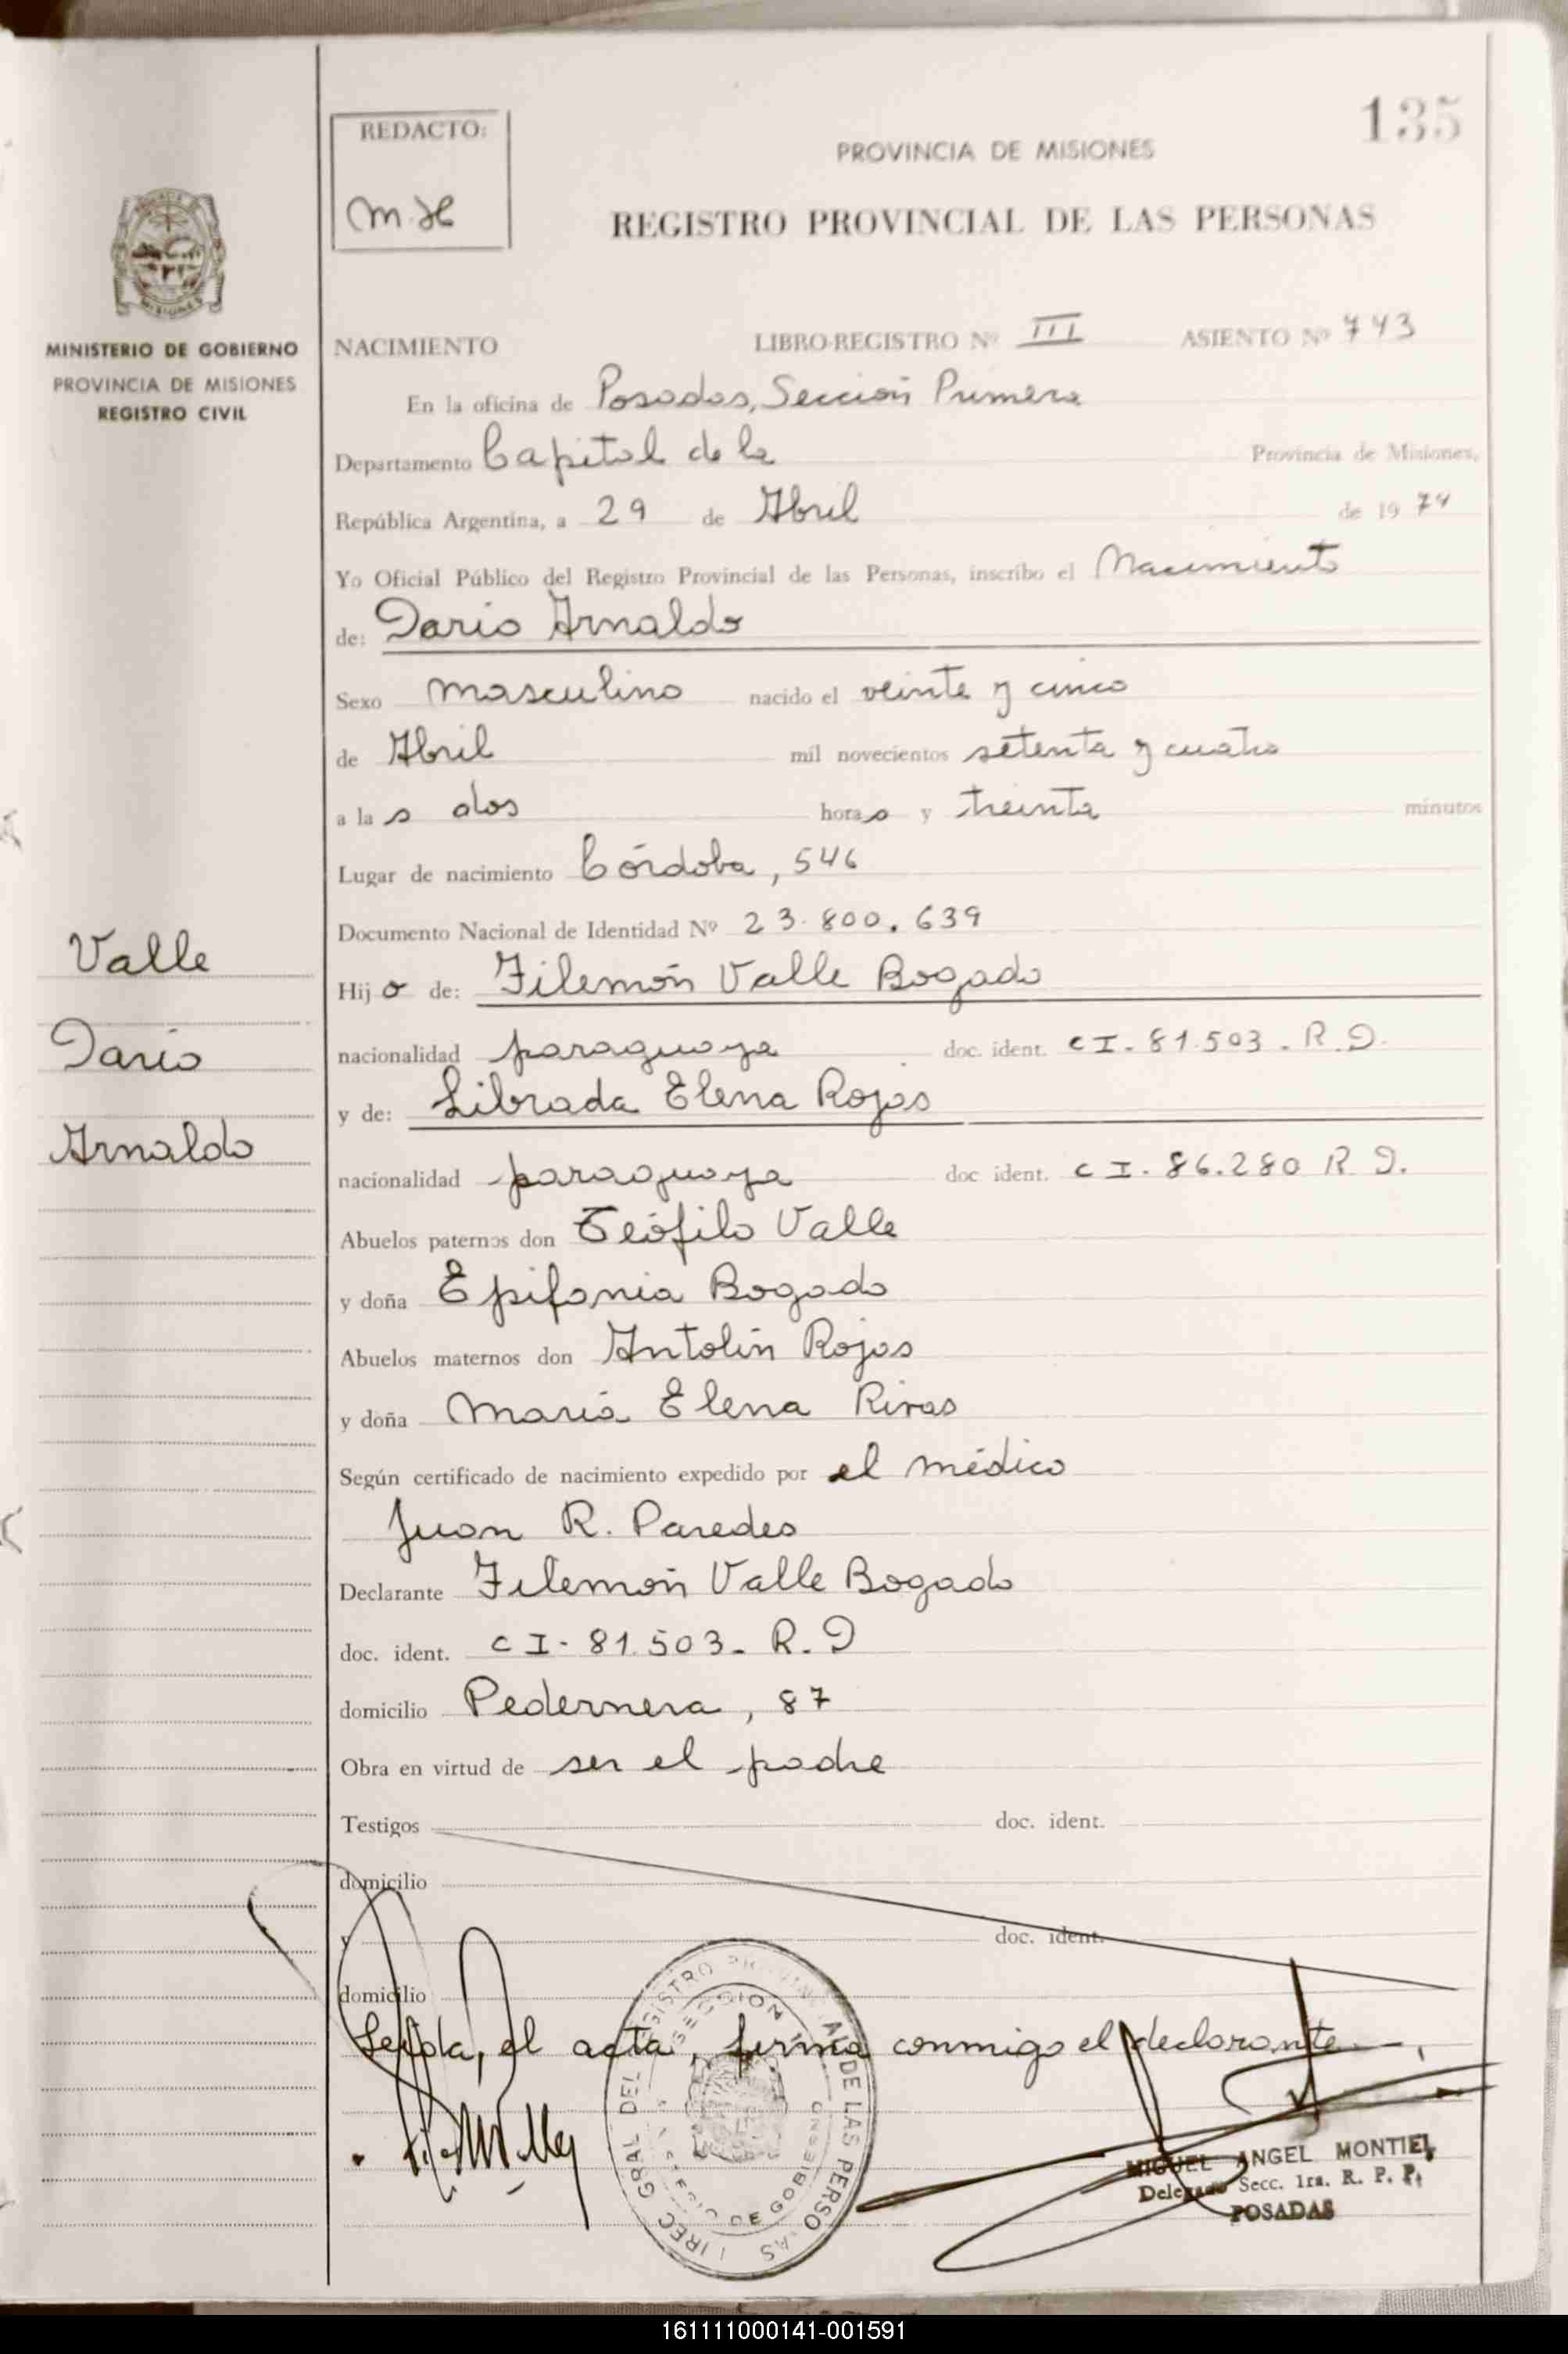 135
REDACTO:
M.H
PROVINCIA DE MISIONES
REGISTRO PROVINCIAL DE LAS PERSONAS
MISIONES
MINISTERIO DE GOBIERNO
PROVINCIA DE MISIONES
REGISTRO CIVIL
Valle
Dario
Arnaldo
NACIMIENTO LIBRO-REGISTRO Nº III ASIENTO Nº 743
En la oficina de Posadas, Sección Primera
Departamento Capital de la Provincia de Misiones,
República Argentina, a 29 de Abril de 1974
Yo Oficial Público del Registro Provincial de las Personas, inscribo el Nacimiento
de: Dario Arnaldo
Sexo masculino nacido el veinte y cinco
de Abril mil novecientos setenta y cuatro
a las dos horas y treinta minutos
Lugar de nacimiento Córdoba, 546
Documento Nacional de Identidad Nº 23.800.639
Hijo de: Filemón Valle Bogado
nacionalidad paraguaya doc. ident. CI. 81.503. R.D.
y de: Librada Elena Rojas
nacionalidad paraguaya doc ident. CI. 86.280 R.D.
Abuelos paternos don Teófilo Valle
y doña Epifania Bogado
Abuelos maternos don Antolín Rojas
y doña María Elena Rivas
Según certificado de nacimiento expedido por el médico
Juan R. Paredes
Declarante Filemón Valle Bogado
doc. ident. CI- 81.503- R.D
domicilio Pedernera, 87
Obra en virtud de ser el padre
Testigos doc. ident.
domicilio
y doc. ident.
domicilio
Leída, el acta, firma conmigo el declarante
MIGUEL ANGEL MONTIEL
Delegado Secc. 1ra. R. P. P.
POSADAS
161111000141-001591